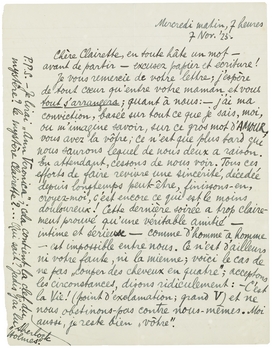 Mercredi matin, 7 heures
7 Nov. '23.
Chère Clairette, en toute hâte un mot –
avant de partir – excusez papier et écriture!
Je vous remercie de votre lettre; j'espère
de tout cœur qu'entre votre maman et vous
tout s'arrangera; quant à nous: – j'ai ma
conviction, basée sur tout ce que je sais, moi,
ou m'imagine savoir, sur ce gros mot d'AMOUR,
vous avez la vôtre; ce n'est que plus tard que
nous saurons lequel de nous deux a raison.
En attendant, cessons de nous voir. Tous ces
efforts de faire revivre une sincérité, décédée
depuis longtemps peut-être, finissons-en,
croyez-moi, c'est encore ce qui est le moins
douloureux! Cette dernière soirée a trop claire-
ment prouvé qu'une véritable amitié –
intime et sérieuse – comme d'homme à homme
– est impossible entre nous. Ce n'est d'ailleurs
ni votre faute, ni la mienne; voici le cas de
ne pas couper des cheveux en quatre; acceptons
les circonstances, disons ridiculement: – C'est
la Vie! (point d'exclamation; grand V) et ne
nous obstinons pas contre nous-mêmes. Moi
aussi, je reste bien "vôtre".
P.P.S. Je lirai Ann Veronica; cela contient la clef du
mystère? le mystère Clairette?... Qui sait? plus
Sherlock
Holmes!